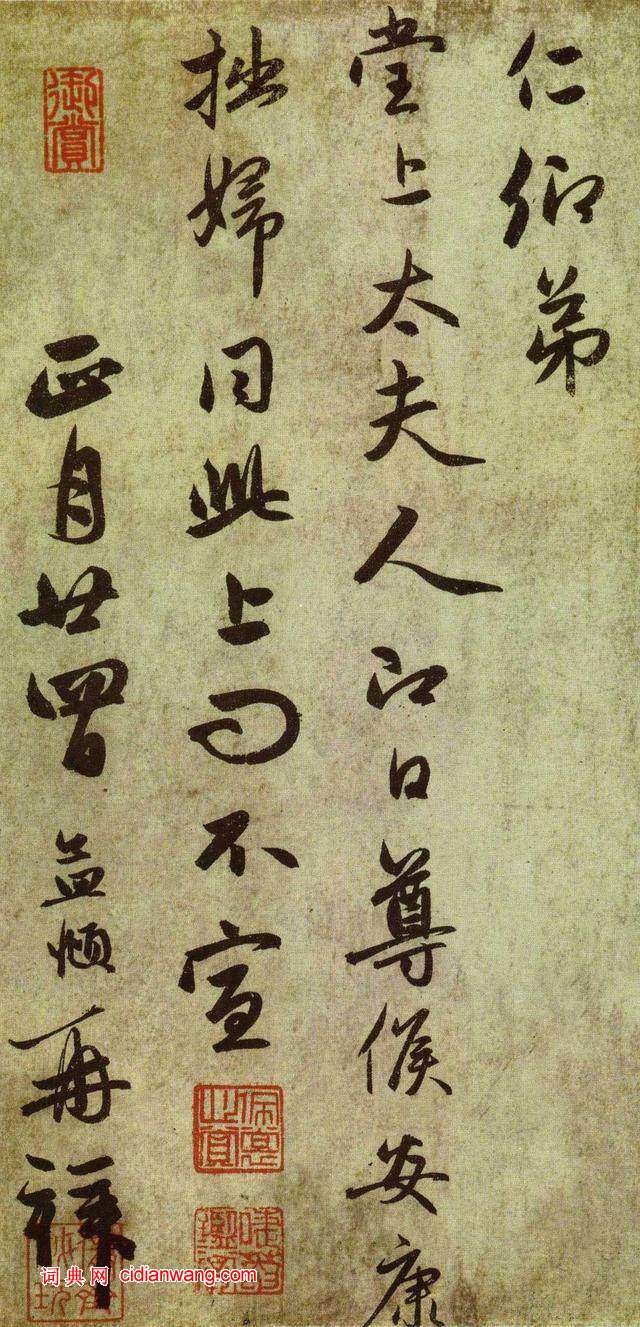 仁卿弟
堂上太夫人即日尊候安康
拙婦同此上問不宣
正月廿四日孟頫再拜
御賞
词典网 cidianwang.com